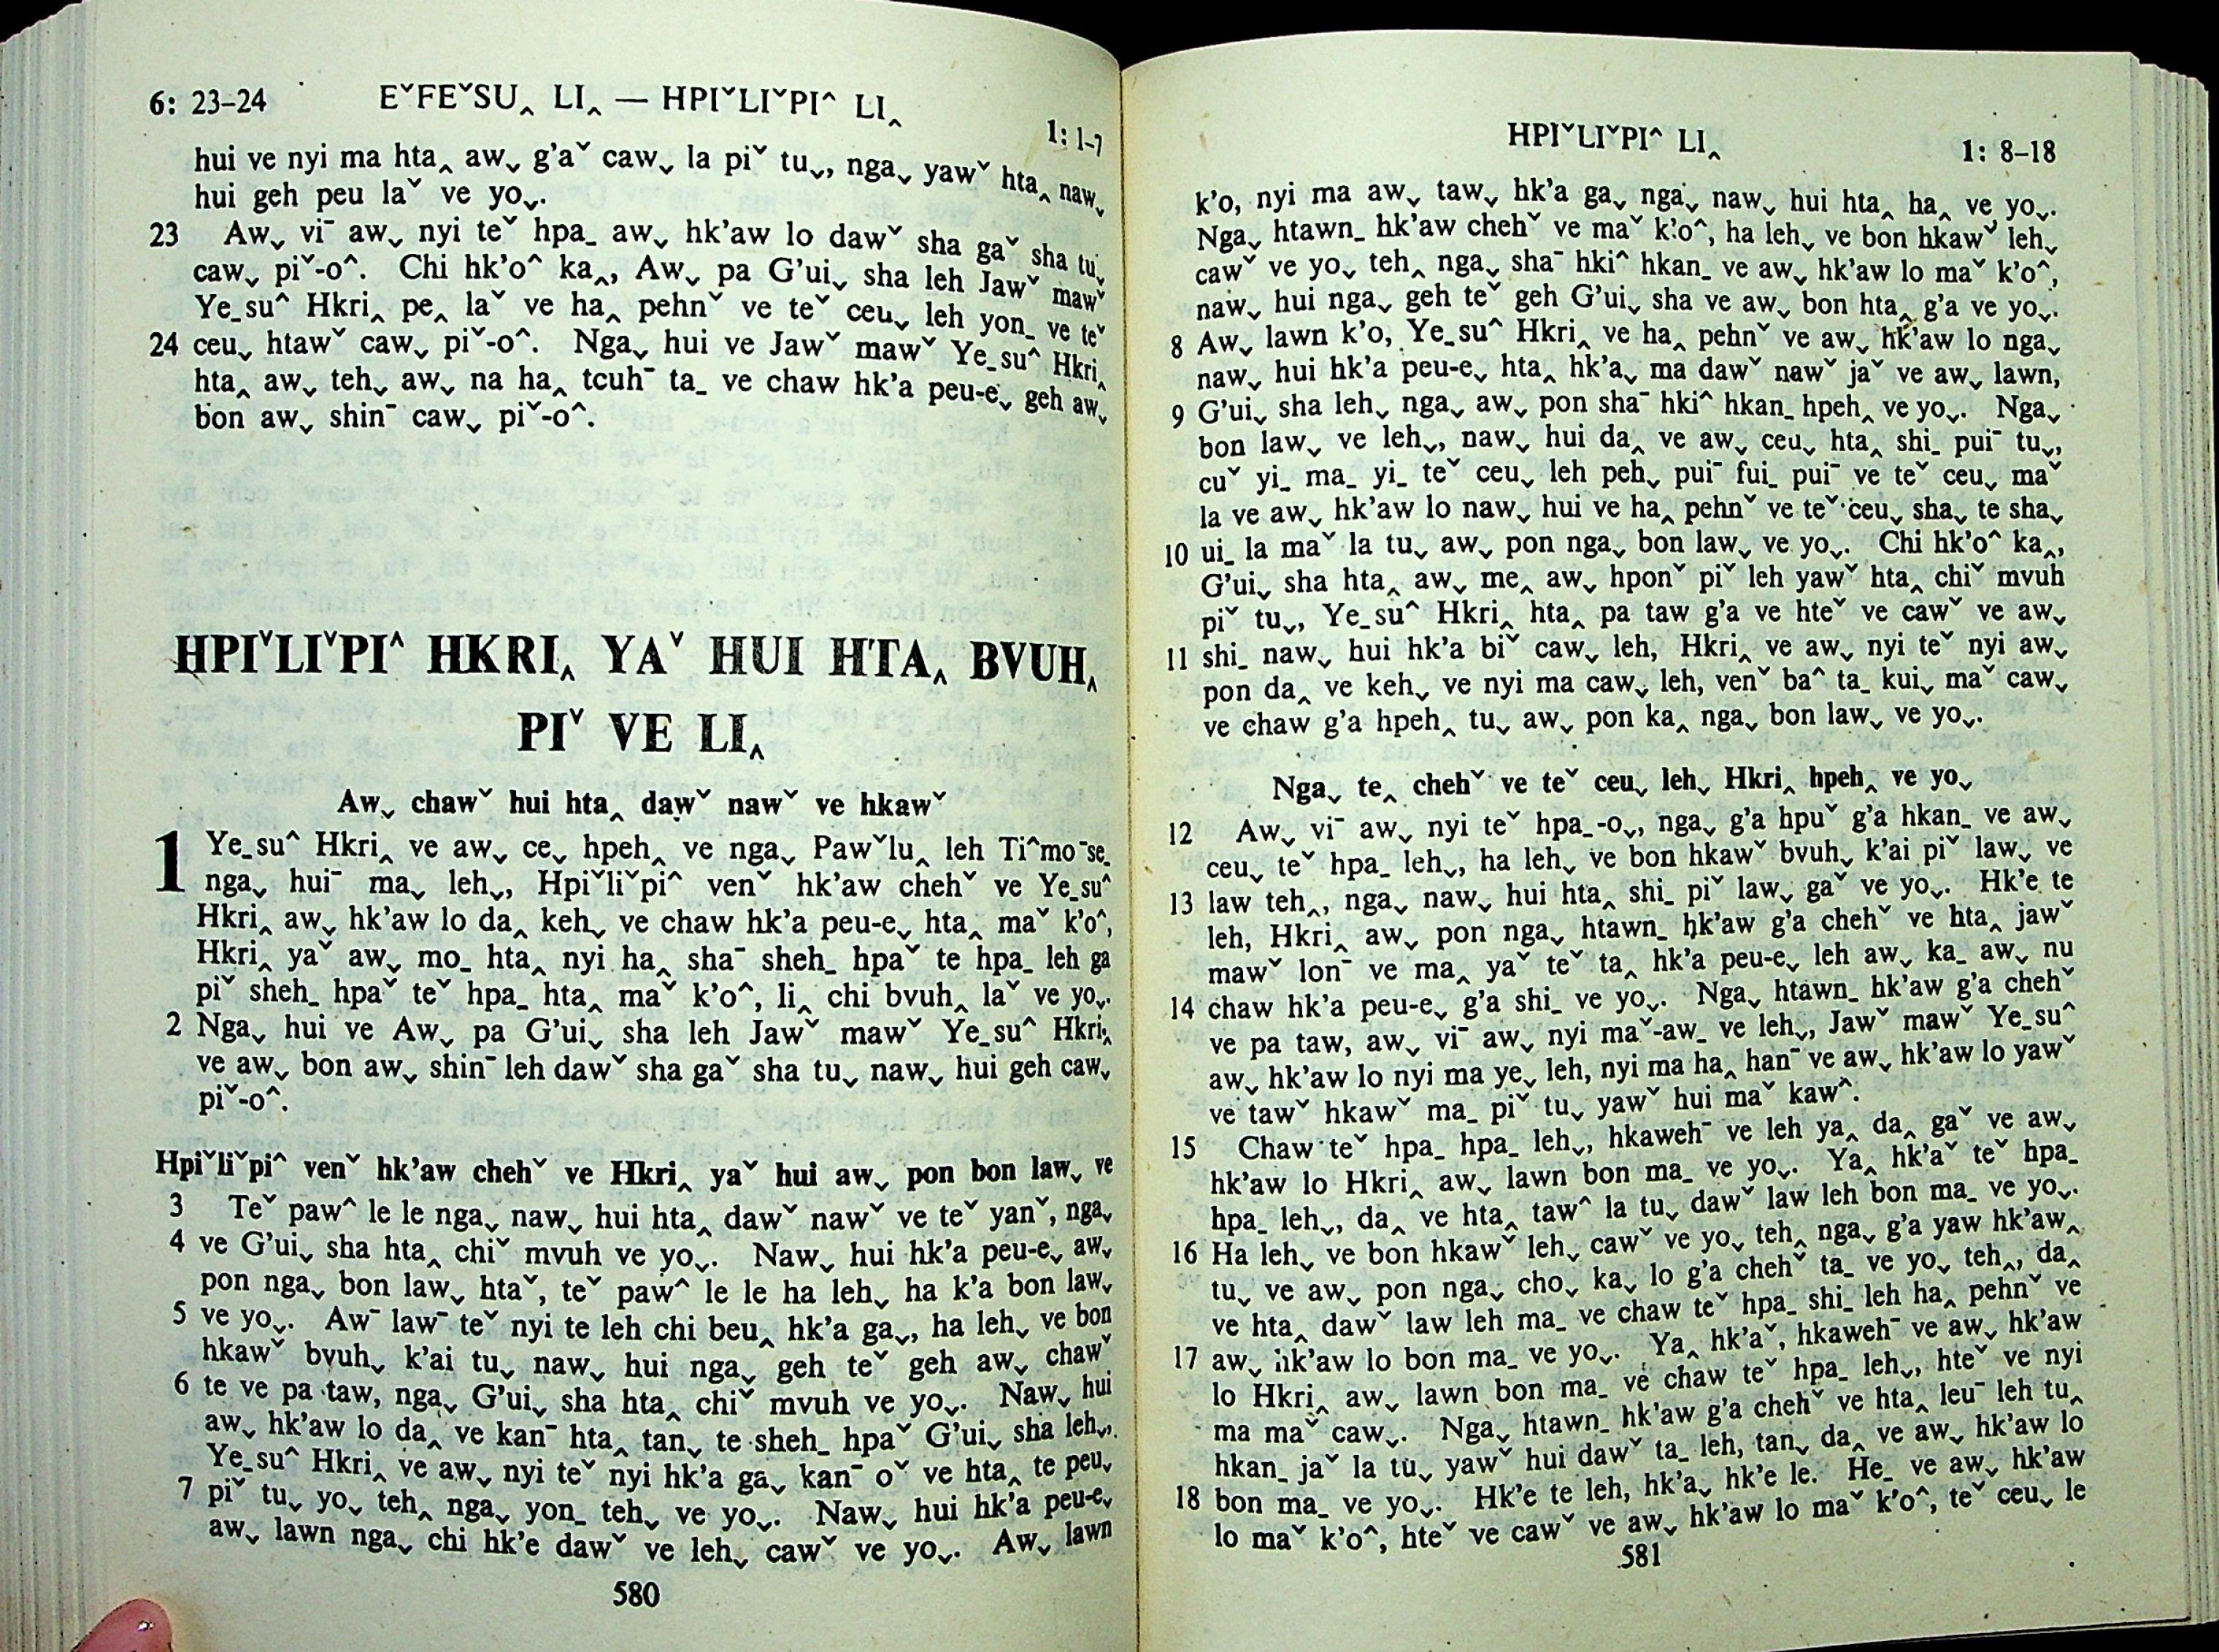 6: 23–24 EˇFEˇSU‸ LI‸ — HPIˇLIˇPI^ LI‸ 1: 1–7
hui ve nyi ma hta‸ aw⌄ g'aˇ caw⌄ la piˇ tu⌄, nga⌄ yawˇ hta‸ naw⌄
hui geh peu laˇ ve yo⌄.
23 Aw⌄ viˉ aw⌄ nyi teˇ hpa_ aw⌄ hk'aw lo dawˇ sha gaˇ sha tu⌄
caw⌄ piˇ-o^. Chi hk'o^ ka‸, Aw⌄ pa G'ui⌄ sha leh Jawˇ mawˇ
Ye_su^ Hkri‸ pe‸ laˇ ve ha‸ pehnˇ ve teˇ ceu⌄ leh yon_ ve teˇ
24 ceu⌄ htawˇ caw⌄ piˇ-o^. Nga⌄ hui ve Jawˇ mawˇ Ye_su^ Hkri‸
hta‸ aw⌄ teh⌄ aw⌄ na ha‸ tcuhˉ ta_ ve chaw hk'a peu-e⌄ geh aw⌄
bon aw⌄ shinˉ caw⌄ piˇ-o^.
HPIˇLIˇPI^ HKRI‸ YAˇ HUI HTA‸ BVUH‸
PIˇ VE LI‸
Aw⌄ chawˇ hui hta‸ dawˇ nawˇ ve hkawˇ
1 Ye_su^ Hkri‸ ve aw⌄ ce⌄ hpeh‸ ve nga⌄ Pawˇlu‸ leh Ti^moˉse_
nga⌄ huiˉ ma⌄ leh⌄, Hpiˇliˇpi^ venˇ hk'aw chehˇ ve Ye_su^
Hkri‸ aw⌄ hk'aw lo da‸ keh⌄ ve chaw hk'a peu-e⌄ hta‸ maˇ k'o^,
Hkri‸ yaˇ aw⌄ mo_ hta‸ nyi ha‸ shaˉ sheh_ hpaˇ te hpa_ leh ga
piˇ sheh_ hpaˇ teˇ hpa_ hta‸ maˇ k'o^, li‸ chi bvuh‸ laˇ ve yo⌄.
2 Nga⌄ hui ve Aw⌄ pa G'ui⌄ sha leh Jawˇ mawˇ Ye_su^ Hkri‸
ve aw⌄ bon aw⌄ shinˉ leh dawˇ sha gaˇ sha tu⌄ naw⌄ hui geh caw⌄
piˇ-o^.
Hpiˇliˇpi^ venˇ hk'aw chehˇ ve Hkri‸ yaˇ hui aw⌄ pon bon law⌄ ve
3 Teˇ paw^ le le nga⌄ naw⌄ hui hta‸ dawˇ nawˇ ve teˇ yanˇ, nga⌄
4 ve G'ui⌄ sha hta‸ chiˇ mvuh ve yo⌄. Naw⌄ hui hk'a peu-e⌄ aw⌄
pon nga⌄ bon law⌄ htaˇ, teˇ paw^ le le ha leh⌄ ha k'a bon law⌄
5 ve yo⌄. Awˉ lawˉ teˇ nyi te leh chi beu‸ hk'a ga⌄, ha leh⌄ ve bon
hkawˇ bvuh⌄ k'ai tu⌄ naw⌄ hui nga⌄ geh teˇ geh aw⌄ chawˇ
6 te ve pa taw, nga⌄ G'ui⌄ sha hta‸ chiˇ mvuh ve yo⌄. Naw⌄ hui
aw⌄ hk'aw lo da‸ ve kanˉ hta‸ tan⌄ te sheh_ hpaˇ G'ui⌄ sha leh⌄,
Ye_su^ Hkri‸ ve aw⌄ nyi teˇ nyi hk'a ga⌄ kanˉ oˇ ve hta‸ te peu⌄
7 piˇ tu⌄ yo⌄ teh‸ nga⌄ yon_ teh⌄ ve yo⌄. Naw⌄ hui hk'a peu-e⌄
aw⌄ lawn nga⌄ chi hk'e dawˇ ve leh⌄ cawˇ ve yo⌄. Aw⌄ lawn
580
HPIˇLIˇPI^ LI‸ 1: 8–18
k'o, nyi ma aw⌄ taw⌄ hk'a ga⌄ nga⌄ naw⌄ hui hta‸ ha‸ ve yo⌄.
Nga⌄ htawn_ hk'aw chehˇ ve maˇ k'o^, ha leh⌄ ve bon hkawˇ leh⌄
cawˇ ve yo⌄ teh‸ nga⌄ shaˉ hki^ hkan_ ve aw⌄ hk'aw lo maˇ k'o^,
naw⌄ hui nga⌄ geh teˇ geh G'ui⌄ sha ve aw⌄ bon hta‸ g'a ve yo⌄.
8 Aw⌄ lawn k'o, Ye_su^ Hkri‸ ve ha‸ pehnˇ ve aw⌄ hk'aw lo nga⌄
naw⌄ hui hk'a peu-e⌄ hta‸ hk'a⌄ ma dawˇ nawˇ jaˇ ve aw⌄ lawn,
9 G'ui⌄ sha leh⌄ nga⌄ aw⌄ pon shaˉ hki^ hkan_ hpeh‸ ve yo⌄. Nga⌄
bon law⌄ ve leh⌄, naw⌄ hui da‸ ve aw⌄ ceu⌄ hta‸ shi_ puiˉ tu⌄,
cuˇ yi_ ma_ yi_ teˇ ceu⌄ leh peh⌄ puiˉ fui_ puiˉ ve teˇ ceu⌄ maˇ
la ve aw⌄ hk'aw lo naw⌄ hui ve ha‸ pehnˇ ve teˇ ceu⌄ sha⌄ te sha⌄
10 ui_ la maˇ la tu⌄ aw⌄ pon nga⌄ bon law⌄ ve yo⌄. Chi hk'o^ ka‸,
G'ui⌄ sha hta‸ aw⌄ me‸ aw⌄ hponˇ piˇ leh yawˇ hta‸ chiˇ mvuh
piˇ tu⌄, Ye_su^ Hkri‸ hta‸ pa taw g'a ve hteˇ ve cawˇ ve aw⌄
11 shi_ naw⌄ hui hk'a biˇ caw⌄ leh, Hkri‸ ve aw⌄ nyi teˇ nyi aw⌄
pon da‸ ve keh⌄ ve nyi ma caw⌄ leh, venˇ ba^ ta_ kui⌄ maˇ caw⌄
ve chaw g'a hpeh‸ tu⌄ aw⌄ pon ka‸ nga⌄ bon law⌄ ve yo⌄.
Nga⌄ te‸ chehˇ ve teˇ ceu⌄ leh⌄ Hkri‸ hpeh‸ ve yo⌄
12 Aw⌄ viˉ aw⌄ nyi teˇ hpa_-o⌄, nga⌄ g'a hpuˇ g'a hkan_ ve aw⌄
ceu⌄ teˇ hpa_ leh⌄, ha leh⌄ ve bon hkawˇ bvuh⌄ k'ai piˇ law⌄ ve
13 law teh‸, nga⌄ naw⌄ hui hta‸ shi_ piˇ law⌄ gaˇ ve yo⌄. Hk'e te
leh, Hkri‸ aw⌄ pon nga⌄ htawn_ hk'aw g'a chehˇ ve hta‸ jawˇ
mawˇ lonˉ ve ma‸ yaˇ teˇ ta‸ hk'a peu-e⌄ leh aw⌄ ka_ aw⌄ nu
14 chaw hk'a peu-e⌄ g'a shi_ ve yo⌄. Nga⌄ htawn_ hk'aw g'a chehˇ
ve pa taw, aw⌄ viˉ aw⌄ nyi maˇ-aw_ ve leh⌄, Jawˇ mawˇ Ye_su^
aw⌄ hk'aw lo nyi ma ye⌄ leh, nyi ma ha‸ hanˉ ve aw⌄ hk'aw lo yawˇ
ve tawˇ hkawˇ ma_ piˇ tu⌄ yawˇ hui maˇ kaw^.
15 Chaw teˇ hpa_ hpa_ leh⌄, hkawehˉ ve leh ya‸ da‸ gaˇ ve aw⌄
hk'aw lo Hkri‸ aw⌄ lawn bon ma_ ve yo⌄. Ya‸ hk'aˇ teˇ hpa_
hpa_ leh⌄, da‸ ve hta‸ taw^ la tu⌄ dawˇ law leh bon ma_ ve yo⌄.
16 Ha leh⌄ ve bon hkawˇ leh⌄ cawˇ ve yo⌄ teh‸ nga⌄ g'a yaw hk'aw‸
tu⌄ ve aw⌄ pon nga⌄ cho⌄ ka⌄ lo g'a chehˇ ta_ ve yo⌄ teh‸, da‸
ve hta‸ dawˇ law leh ma_ ve chaw teˇ hpa_ shi_ leh ha‸ pehnˇ ve
17 aw⌄ hk'aw lo bon ma_ ve yo⌄. Ya‸ hk'aˇ, hkawehˉ ve aw⌄ hk'aw
lo Hkri‸ aw⌄ lawn bon ma_ ve chaw teˇ hpa_ leh⌄, hteˇ ve nyi
ma maˇ caw⌄. Nga⌄ htawn_ hk'aw g'a chehˇ ve hta‸ leuˉ leh tu‸
hkan_ jaˇ la tu⌄ yawˇ hui dawˇ ta_ leh, tan⌄ da‸ ve aw⌄ hk'aw lo
18 bon ma_ ve yo⌄. Hk'e te leh, hk'a⌄ hk'e le. He_ ve aw⌄ hk'aw
lo maˇ k'o^, hteˇ ve cawˇ ve aw⌄ hk'aw lo maˇ k'o^, teˇ ceu⌄ le
581